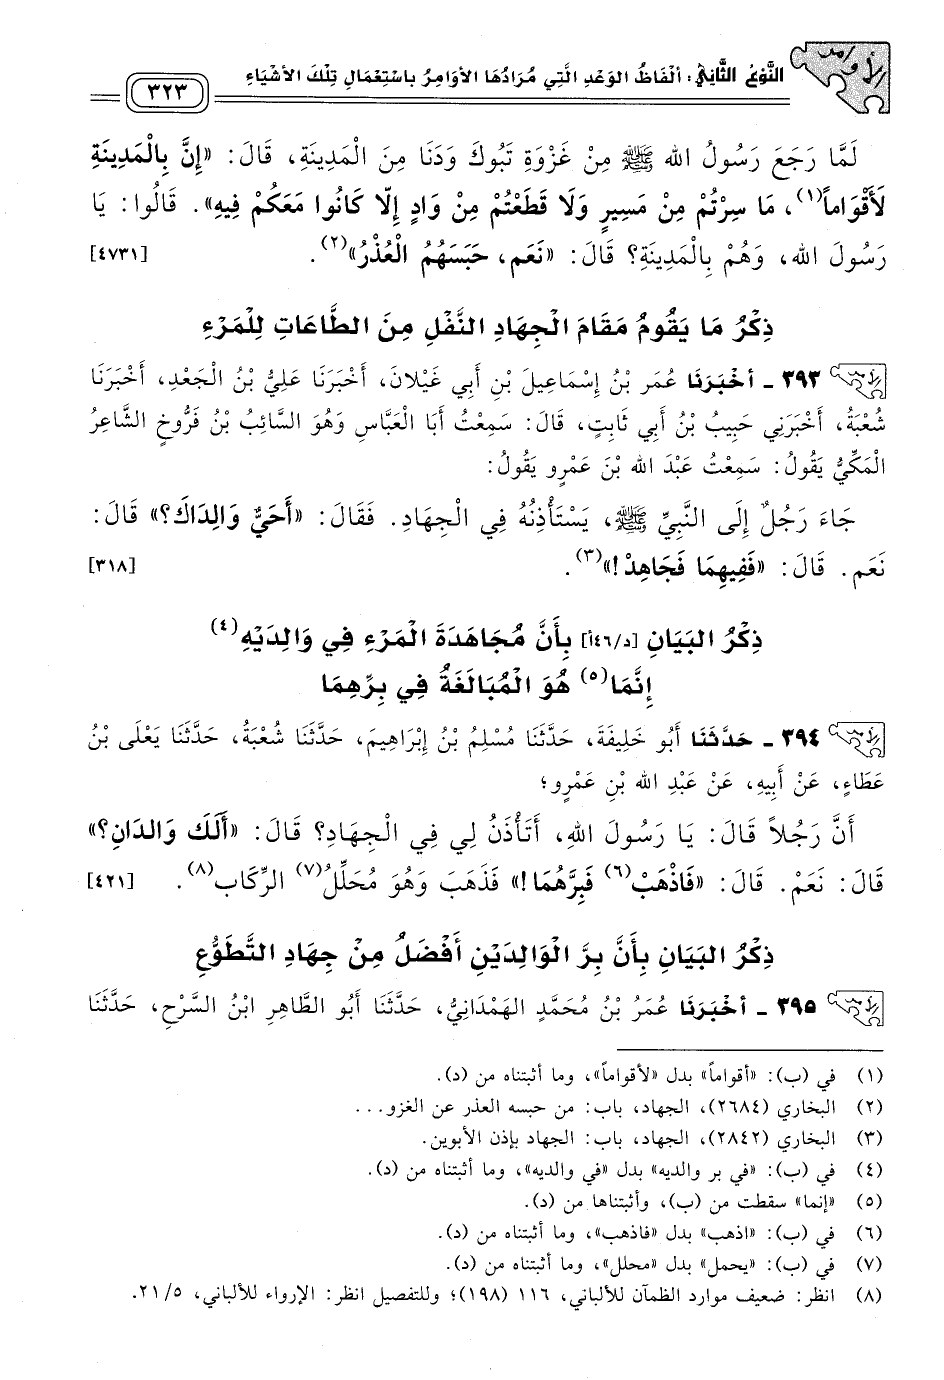 الأوامر
النَّوْعُ الثَّانِي: ألفَاظُ الوَعْدِ الَّتِي مُرَادُهَا الأوَامِرُ باسْتِعْمَالِ تِلْكَ الأشْيَاءِ
٣٢٣
لَمَّا رَجَعَ رَسُولُ الله ﷺ مِنْ غَزْوَةِ تَبُوكَ وَدَنَا مِنَ الْمَدِينَةِ، قَالَ: «إِنَّ بِالْمَدِينَةِ
لَأَقْوَاماً(١)، مَا سِرْتُمْ مِنْ مَسِيرٍ وَلَا قَطَعْتُمْ مِنْ وَادٍ إِلَّا كَانُوا مَعَكُمْ فِيهِ». قَالُوا: يَا
رَسُولَ الله، وَهُمْ بِالْمَدِينَةِ؟ قَالَ: «نَعَم، حَبَسَهُمُ الْعُذْرُ»(٢). [٤٧٣١]
ذِكْرُ مَا يَقُومُ مَقَامَ الْجِهَادِ النَّفْلِ مِنَ الطَّاعَاتِ لِلْمَرْءِ
٣٩٣ ـ أخْبَرَنَا عُمَر بْنُ إِسْمَاعِيلَ بْنِ أَبِي غَيْلَانَ، أَخْبَرَنَا عَلِيُّ بْنُ الْجَعْدِ، أَخْبَرَنَا
شُعْبَةُ، أَخْبَرَنِي حَبِيبُ بْنُ أَبِي ثَابِتٍ، قَالَ: سَمِعْتُ أَبَا الْعَبَّاسِ وَهُوَ السَّائِبُ بْنُ فَرُّوخِ الشَّاعِرُ
الْمَكِّيُّ يَقُولُ: سَمِعْتُ عَبْدَ الله بْنَ عَمْرٍو يَقُولُ:
جَاءَ رَجُلٌ إِلَى النَّبِيِّ ﷺ، يَسْتَأْذِنُهُ فِي الْجِهَادِ. فَقَالَ: «أَحَيٌّ وَالِدَاكَ؟» قَالَ:
نَعَم. قَالَ: «فَفِيهِمَا فَجَاهِدْ!»(٣). [٣١٨]
ذِكْرُ البَيَانِ [د/١٤٦أ] بِأَنَّ مُجَاهَدَةَ الْمَرْءِ فِي وَالِدَيْهِ(٤)
إِنَّمَا(٥) هُوَ الْمُبَالَغَةُ فِي بِرِّهِمَا
٣٩٤ ـ حَدَّثَنَا أَبُو خَلِيفَةَ، حَدَّثَنَا مُسْلِمُ بْنُ إِبْرَاهِيمَ، حَدَّثَنَا شُعْبَةُ، حَدَّثَنَا يَعْلَى بْنُ
عَطَاءٍ، عَنْ أَبِيهِ، عَنْ عَبْدِ الله بْنِ عَمْرٍو؛
أَنَّ رَجُلاً قَالَ: يَا رَسُولَ اللهِ، أَتَأْذَنُ لِي فِي الْجِهَادِ؟ قَالَ: «أَلَكَ وَالِدَانِ؟»
قَالَ: نَعَمْ. قَالَ: «فَاذْهَبْ(٦) فَبِرَّهُمَا!» فَذَهَبَ وَهُوَ مُحَلِّلُ(٧) الرِّكَابِ(٨). [٤٢١]
ذِكْرُ البَيَانِ بِأَنَّ بِرَّ الْوَالِدَيْنِ أَفْضَلُ مِنْ جِهَادِ التَّطَوُّعِ
٣٩٥ ـ أخْبَرَنَا عُمَرُ بْنُ مُحَمَّدٍ الهَمْدَانِيُّ، حَدَّثَنَا أَبُو الطَّاهِرِ ابْنُ السَّرْحِ، حَدَّثَنَا
(١) في (ب): «أقواماً» بدل «لأقواماً»، وما أثبتناه من (د).
(٢) البخاري (٢٦٨٤)، الجهاد، باب: من حبسه العذر عن الغزو...
(٣) البخاري (٢٨٤٢)، الجهاد، باب: الجهاد بإذن الأبوين.
(٤) في (ب): «في بر والديه» بدل «في والديه»، وما أثبتناه من (د).
(٥) «إنما» سقطت من (ب)، وأثبتناها من (د).
(٦) في (ب): «اذهب» بدل «فاذهب»، وما أثبتناه من (د).
(٧) في (ب): «يحمل» بدل «محلل»، وما أثبتناه من (د).
(٨) انظر: ضعيف موارد الظمآن للألباني، ١١٦ (١٩٨)؛ وللتفصيل انظر: الإرواء للألباني، ٢١/٥.